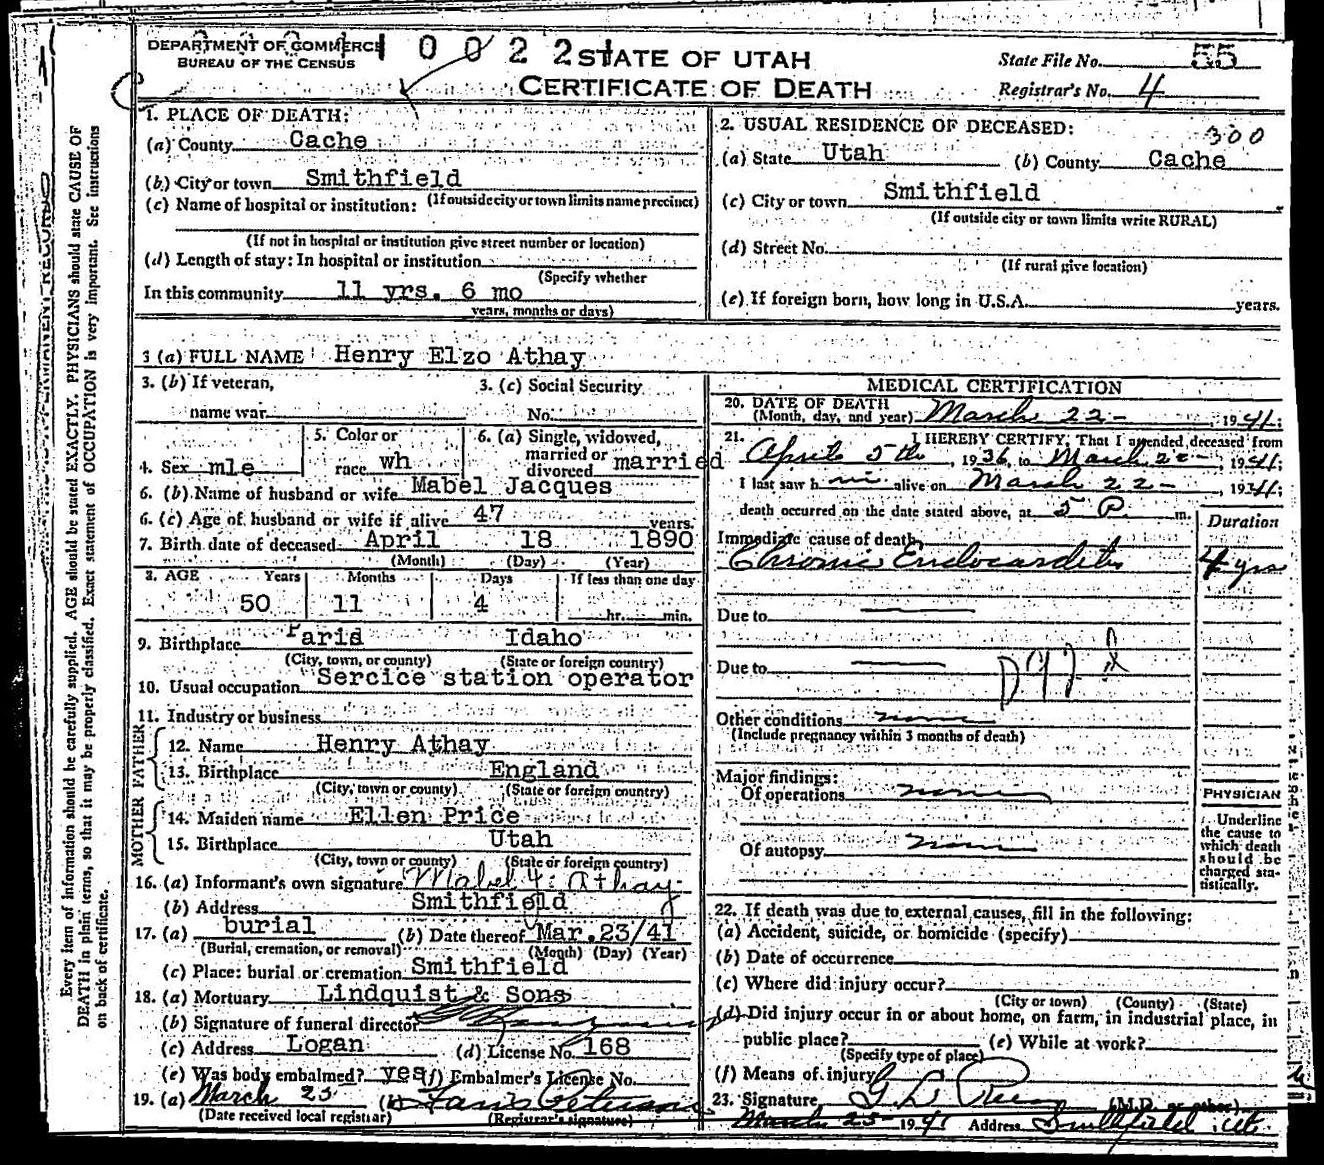 DEPARTMENT OF COMMERCE
BUREAU OF THE CENSUS
1 0 0 2 2
STATE OF UTAH
CERTIFICATE OF DEATH
State File No. 55
Registrar's No. 4
Every item of information should be carefully supplied. AGE should be stated EXACTLY. PHYSICIANS should state CAUSE OF
DEATH in plain terms, so that it may be properly classified. Exact statement of OCCUPATION is very important. See instructions
on back of certificate.
1. PLACE OF DEATH:
(a) County Cache
(b) City or town Smithfield
(If outside city or town limits name precinct)
(c) Name of hospital or institution:
(If not in hospital or institution give street number or location)
(d) Length of stay: In hospital or institution
(Specify whether
In this community 11 yrs. 6 mo
years, months or days)
2. USUAL RESIDENCE OF DECEASED:
300
(a) State Utah (b) County Cache
(c) City or town Smithfield
(If outside city or town limits write RURAL)
(d) Street No.
(If rural give location)
(e) If foreign born, how long in U.S.A. years.
3 (a) FULL NAME Henry Elzo Athay
3. (b) If veteran,
name war
3. (c) Social Security
No.
4. Sex mle
5. Color or
race wh
6. (a) Single, widowed,
married or
divorced married
6. (b) Name of husband or wife Mabel Jacques
6. (c) Age of husband or wife if alive 47 years.
7. Birth date of deceased April 18 1890
(Month) (Day) (Year)
8. AGE Years Months Days If less than one day
50 11 4 hr. min.
9. Birthplace Paris Idaho
(City, town, or county) (State or foreign country)
10. Usual occupation Sercice station operator
11. Industry or business
FATHER
12. Name Henry Athay
13. Birthplace England
(City, town or county) (State or foreign country)
MOTHER
14. Maiden name Ellen Price
15. Birthplace Utah
(City, town or county) (State or foreign country)
16. (a) Informant's own signature Mabel J. Athay
(b) Address Smithfield
17. (a) burial (b) Date thereof Mar. 23/41
(Burial, cremation, or removal) (Month) (Day) (Year)
(c) Place: burial or cremation Smithfield
18. (a) Mortuary Lindquist & Sons
(b) Signature of funeral director
(c) Address Logan (d) License No. 168
(e) Was body embalmed? yes (f) Embalmer's License No.
19. (a) March 25 (b) Peterson
(Date received local registrar) (Registrar's signature)
MEDICAL CERTIFICATION
20. DATE OF DEATH
(Month, day, and year) March 22 - , 1941;
21. I HEREBY CERTIFY, That I attended deceased from
April 5th, 1936, to March 22 - , 1941;
I last saw h im alive on March 22 - , 1941;
death occurred on the date stated above, at 5 P. m.
Duration
Immediate cause of death
Chronic Endocarditis 4 yrs
Due to
Due to
Other conditions none
(Include pregnancy within 3 months of death)
Major findings:
Of operations none
Of autopsy none
PHYSICIAN
Underline
the cause to
which death
should be
charged sta-
tistically.
22. If death was due to external causes, fill in the following:
(a) Accident, suicide, or homicide (specify)
(b) Date of occurrence
(c) Where did injury occur?
(City or town) (County) (State)
(d) Did injury occur in or about home, on farm, in industrial place, in
public place? (e) While at work?
(Specify type of place)
(f) Means of injury
23. Signature G L Rees (M.D. or other)
March 25 - 1941 Address Smithfield Ut.